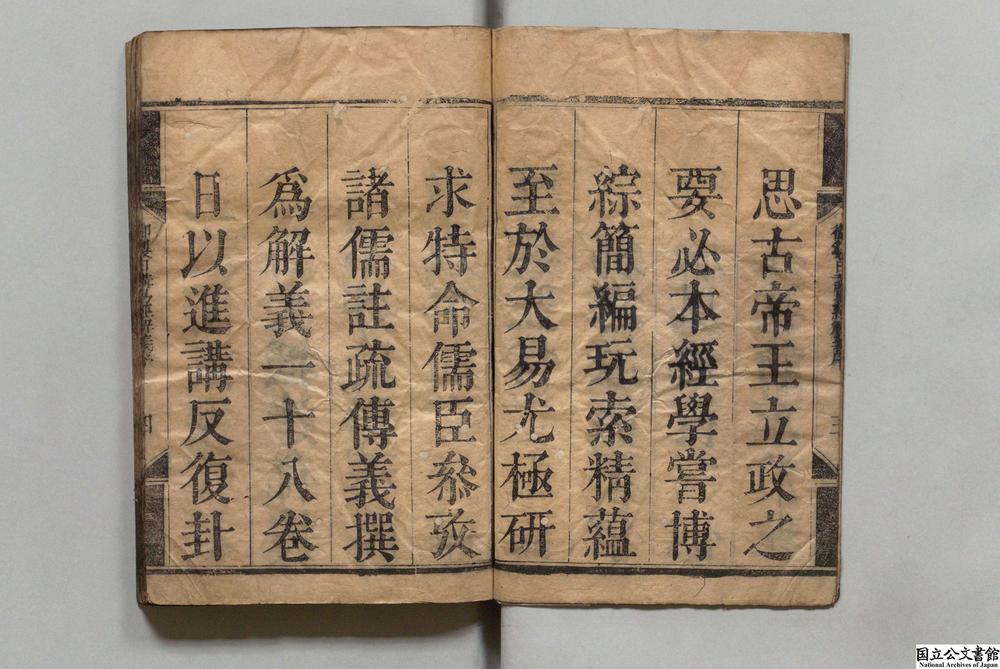 思古帝王立政之
要必本經學嘗博
綜簡編玩索精蘊
至於大易尤極研
求特命儒臣叅攷
諸儒註疏傳義撰
爲解義一十八卷
日以進講反復卦
国立公文書館
National Archives of Japan